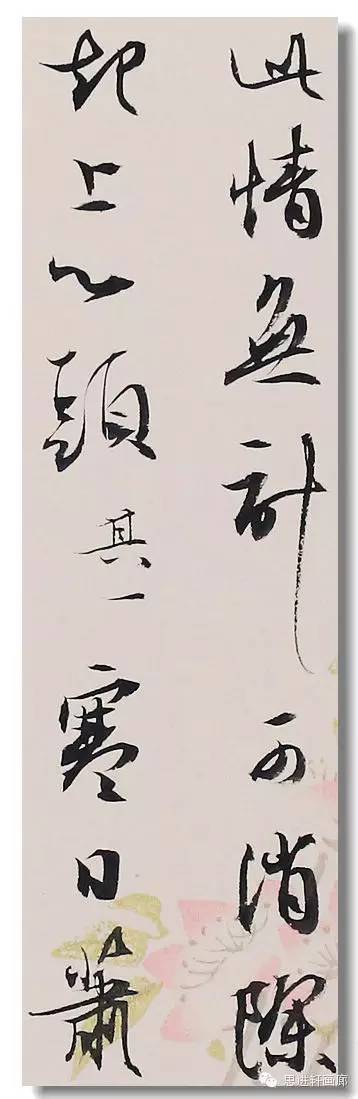 此情無計可消除
却上心頭其一寒日蕭
思进轩画廊